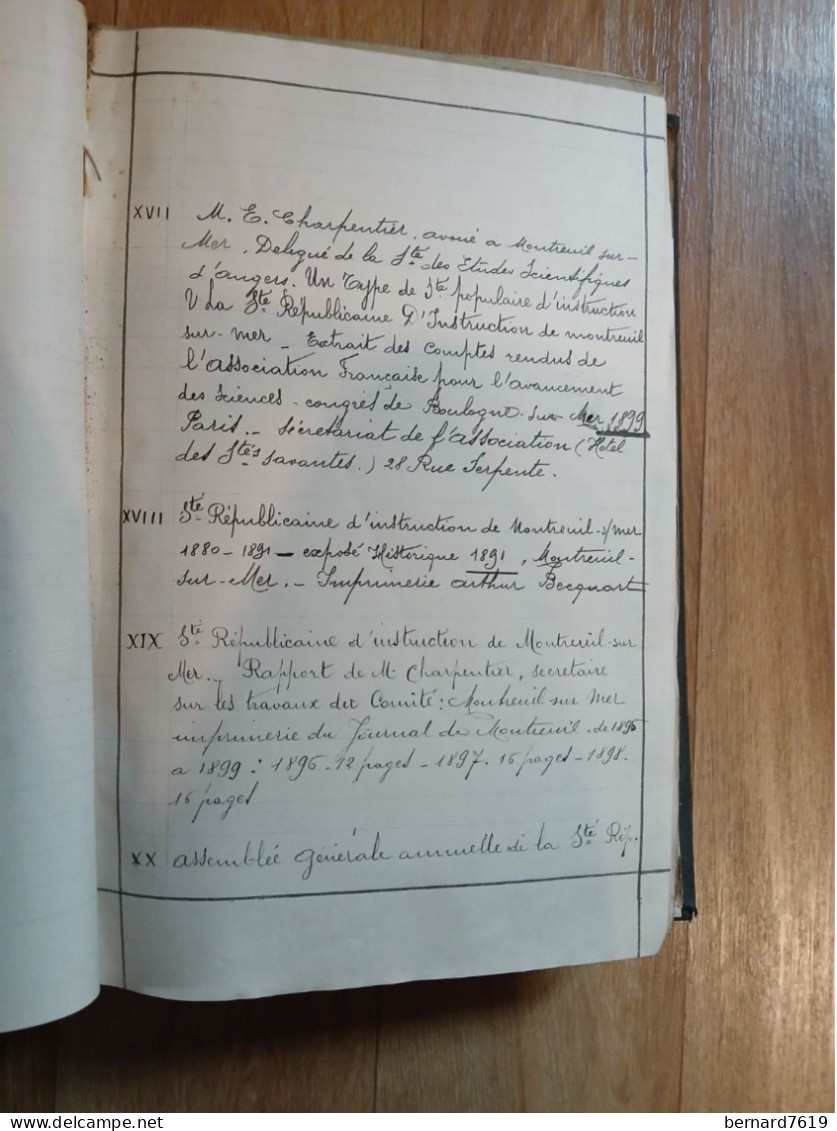 XVII M. E. Charpentier, avoué à Montreuil sur-
Mer. Delegué de la Sté des Etudes Scientifiques
d'angers. Un Type de Sté populaire d'instruction
V La Sté Républicaine D'Instruction de montreuil
sur-mer - Extrait des Comptes rendus de
l'association Française pour l'avancement
des Sciences - congrès de Boulogne-sur-Mer 1899
Paris - Sécretariat de l'association (Hotel
des Stés savantes.) 28 Rue Serpente.
XVIII Sté Républicaine d'instruction de Montreuil-s/mer
1880-1891 - exposé Historique 1891, Montreuil-
sur-Mer. - Imprimerie arthur Becquart
XIX Sté Républicaine d'instruction de Montreuil-sur
Mer. - Rapport de M. Charpentier, secretaire
sur les travaux du Comité : Montreuil sur mer
imprimerie du Journal de Montreuil. de 1896
a 1899 : 1896-12 pages - 1897. 16 pages - 1898.
16 pages
XX assemblée générale annuelle de la Sté Rép.
delcampe.net
bernard7619